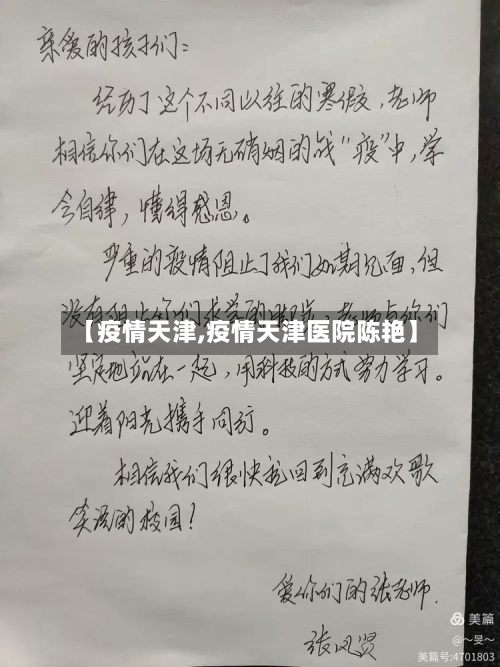 亲爱的孩子们:
经历了这个不同以往的寒假,老师
相信你们在这场无硝烟的战"疫"中,学
会自律,懂得感恩。
严重的疫情阻止了我们如期见面,但
没有阻止你们求学的脚步,老师与你们
【疫情天津,疫情天津医院陈艳】
坚定地站在一起,用科技的方式努力学习。
迎着阳光携手同行。
相信我们很快就回到充满欢歌
笑语的校园!
爱你们的张老师.
张凤贤
美篇
@~旻~
美篇号:4701803